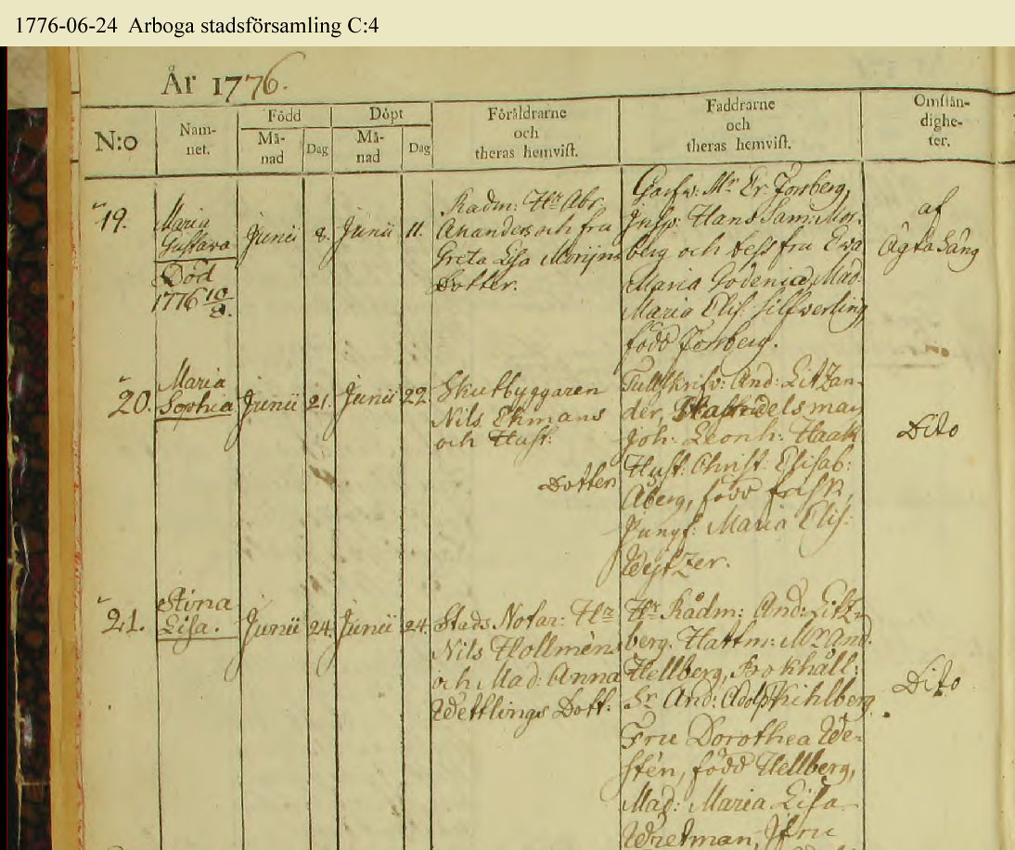 1776-06-24 Arboga stadsförsamling C:4
År 1776.
N:o
Nam-
net.
Född
Må-
nad
Dag
Döpt
Må-
nad
Dag
Föräldrarne
och
theras hemvist.
Faddrarne
och
theras hemvist.
Omstän-
dighe-
ter.
19.
Maria
Gustava
Död
1776 10/8.
Junii
8.
Junii
11.
Radm: Hr Abr.
och fru
Greta Lisa
Dotter.
Mr Er. Forsberg,
Insp: Hans Sam: Nor-
berg och dess fru Eva
Maria Godenia, Mad.
Maria Elis. Silfverling
född Forsberg.
af
Ägta Säng
20.
Maria
Sophia
Junii
21.
Junii
22.
Skutbyggaren
Nils Ekmans
och Hust:
Dotter
Tullskrifv: And: Litzan-
der,
Joh: Leonh: Haak
Hust: Christ: Elisab:
Åberg, född Frisk,
Jungf: Maria Elis:
Dito
21.
Stina
Lisa.
Junii
24.
Junii
24.
Stads Notar: Hr
Nils Hollmèns
och Mad: Anna
Wettlings Dott:
Hr Rådm: And: Litz-
berg. Hattm:
Hellberg, Bokhåll:
Sr And: Adolp Kihlberg
Fru Dorothea We-
stén, född Hellberg,
Mad: Maria Lisa
Wretman, Jfru
Dito